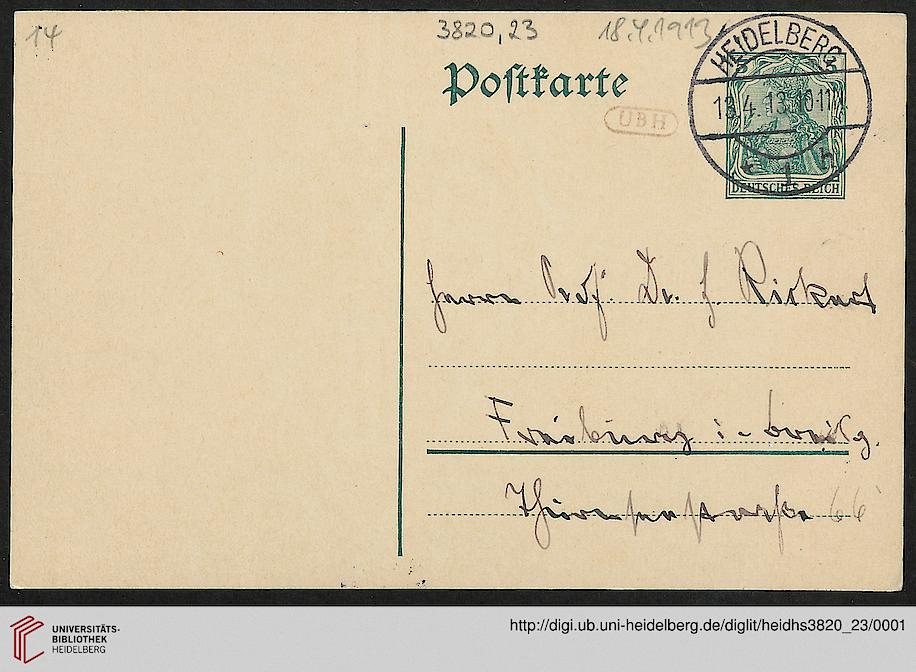 14
3820,23
18.4.1913
Postkarte
UBH
HEIDELBERG
4.13.10-11
1
DEUTSCHES REICH
Herrn Prof. Dr. H. Rickert
Freiburg i. Breisg.
Thurnseestraße 66
UNIVERSITÄTS-
BIBLIOTHEK
HEIDELBERG
http://digi.ub.uni-heidelberg.de/diglit/heidhs3820_23/0001